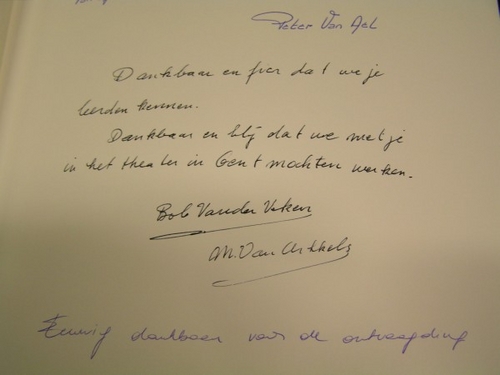 Peter Van Ael
Dankbaar en fier dat we je
leerden kennen.
Dankbaar en blij dat we met je
in het theater in Gent mochten werken.
Bob Vander Veken
M. Van Arkkels
Eeuwig dankbaar voor de